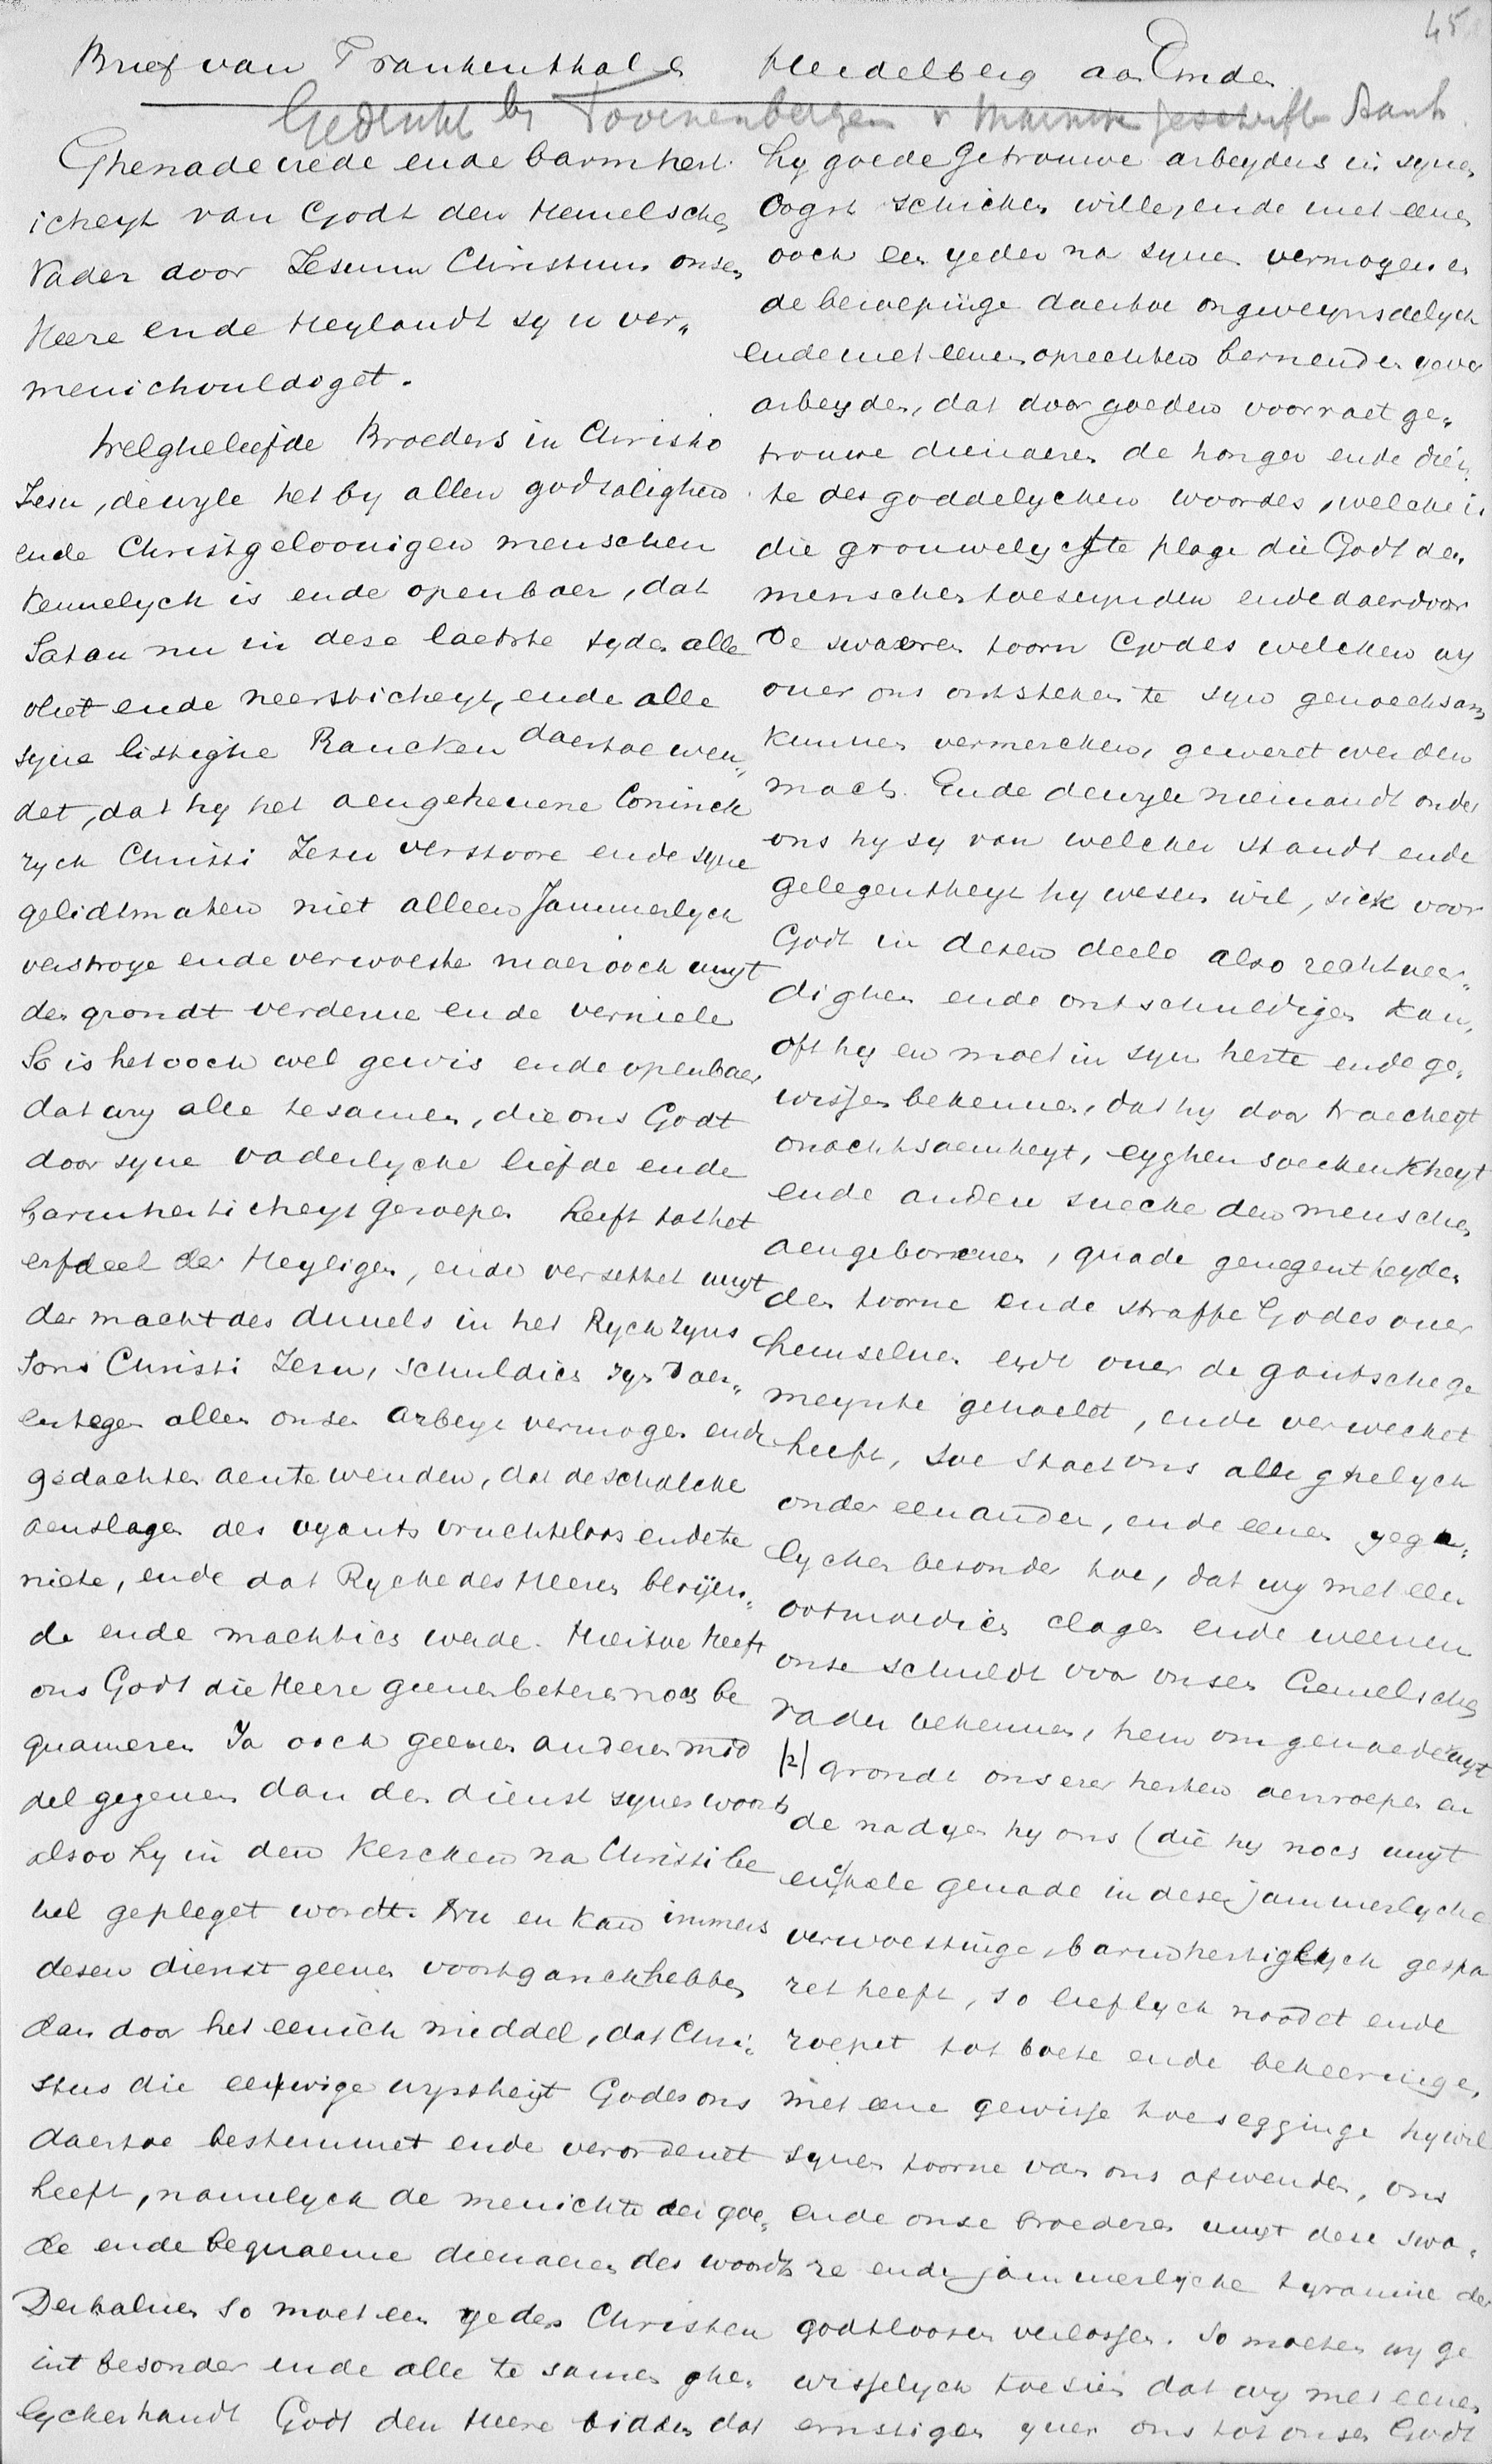 45
Brief van Frankenthal &
Heidelberg aan Emden
Gedrukt bij Toorenenbergen v Marnix geschriften Aanh.
Ghenade vrede ende barmhert.
icheyt van Godt den Hemelschen
Vader door Jesum Christum onsen
Heere ende Heylandt sy u ver„
menichvuldiget.
Welgheliefde Broeders in Christo
Jesu, dewyle het by allen godsalighen
ende Christgeloouigen menschen
kennelyck is ende openbaer, dat
Satan nu in dese laetste tyden alle
vliet ende neersticheyt, ende alle
syne listighe Rancken daertoe wen„
det, dat hy het aengeheuene Coninck
ryck Christi Jesu verstoore ende syne
gelidtmaten niet alleen Jammerlyck
verstroye ende verwoeste maer ooch uuyt
den grondt verderue ende verniele
So is het ooch wel gewis ende openbaer
dat wy alle tesamen, die ons Godt
door syne vaderlycke liefde ende
barmherticheyt geroepen heeft tot het
erfdeel der Heyligen, ende versettet uuyt
der macht des duuels in het Ryck zyns
Sons Christi Jesu, schuldich zyn daer„
entegen allen onsen arbeyt vermogen ende
gedachten aente wenden, dat de schalcke
aenslagen des vyants vruchteloos ende te
niete, ende dat Rycke des Heeren blyuen„
de ende machtich werde. Hiertoe heeft
ons Godt die Heere geenen beteren noch be
quameren Ja ooch geenen anderen mid
del gegeuen dan den dienst synes woorts
alsoo hy in den Kercken na Christi be
uel gepleget wordt. Nu en kan immers
desen dienst geenen voortganck hebben
dan door het eenich middel, dat Chri„
stus die eewige wysheyt Godes ons
daertoe bestemmet ende verordenet
heeft, namelyck de menichte der goe„
de ende bequaeme dienaers des woordts
Derhaluen so moet een yeder Christen
int besonder ende alle te samen ghe„
lyckerhandt Godt den Heere bidden dat
hy goede getrouwe arbeyders in synen
Oogst schicken wille, ende met eenen
ooch een yeder na synen vermogen en
de beroepinge daertoe ongeveynsdelyck
ende met eenen oprechten bernenden yever
arbeyden, dat door goeden voorraet ge„
trouwe dienaren de honger ende dier
te des goddelycken woordes, welcke is
die grouwelycste plage die Godt den
menschen toeseynden ende daerdoor
De swaeren toorn Godes welcken wy
ouer ons ontsteken te syn genoechsam
kunnen vermercken, geweret werden
mach. Ende dewyle niemandt onder
ons hy sy van welcken standt ende
gelegentheyt hy wesen wil, sick voor
Godt in desen deele also rechtveer„
dighen ende ontschuldigen kan,
oft hy en moet in syn herte ende ge„
wissen bekennen, dat hy door traecheyt
onachtsaemheyt, eyghen soeckentheyt
ende andere suecke den menschen
aengeborenen, quade genegentheyden
den toorne ende straffe Godes ouer
hemseluen ende ouer de gantsche ge
meynte gehaelt, ende verwecket
heeft, soe staet ons alle ghelyck
onder eenander, ende eenen yege„
lycken besonder toe, dat wy met een
ootmoedich clagen ende weenen
onse schuldt voor onsen Hemelschen
vader bekennen, hem om genaede uuyt
|2| grondt onserer herten aenroepen en
de nadyen hy ons (die hy noch uuyt
enckele genade in deser jammerlyche
verwoestinge, barmhertighlyck gespa
ret heeft, so lieflyck noodet ende
roepet tot boete ende bekeeringe,
met eene gewisse toesegginge hy wil
synen toorne van ons afwenden, ons
ende onse broederen uuyt dese swa„
re ende jammerlycke tyrannie der
godtloosen verlossen. So moeten wy ge
wisselyck toesien dat wy met eenen
ernstigen yuer ons tot onsen Godt